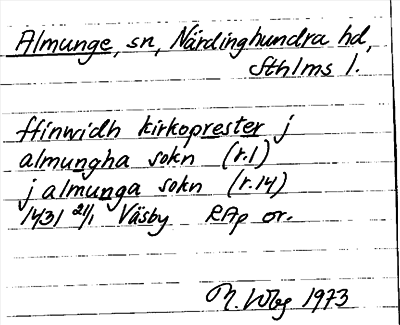 Almunge, sn, Närdinghundra hd,
Sthlms l.
ffinwidh kirkoprester j
almungha sokn (r.1)
j almunga sokn (r.14)
1431 21/1 Väsby RAp or.
1973